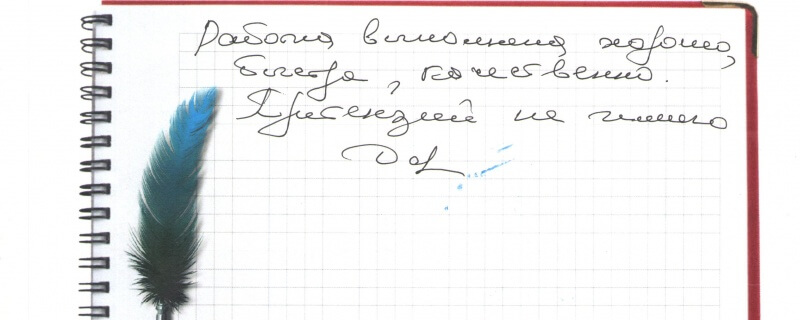 Работа выполнена хорошо,
быстро, качественно.
Притензий не имею